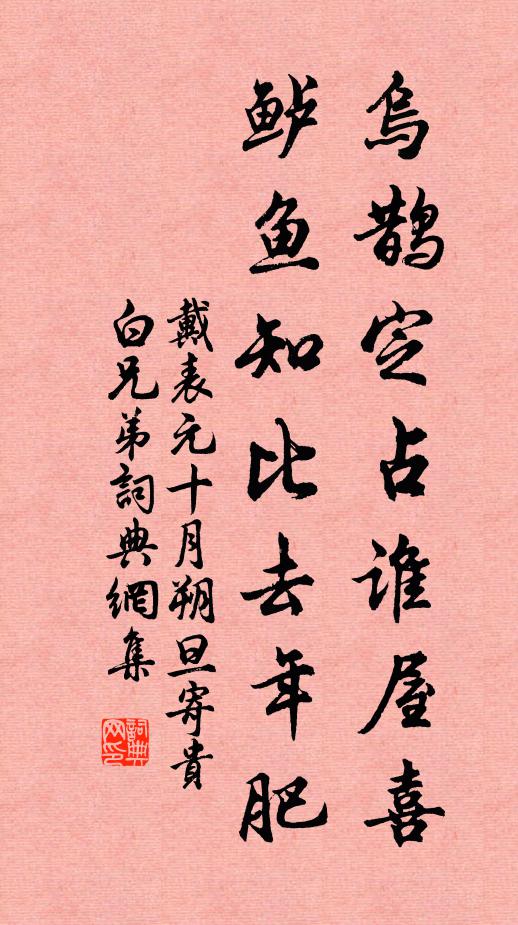 乌鹊定占谁屋喜
鲈鱼知比去年肥
戴表元十月朔旦寄貴
白兄弟詞典網集
詞典
网印